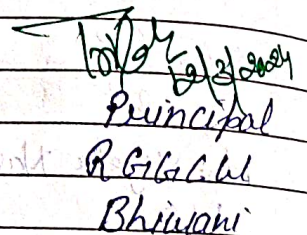 12/3/2024
Principal
R G G C W
Bhiwani